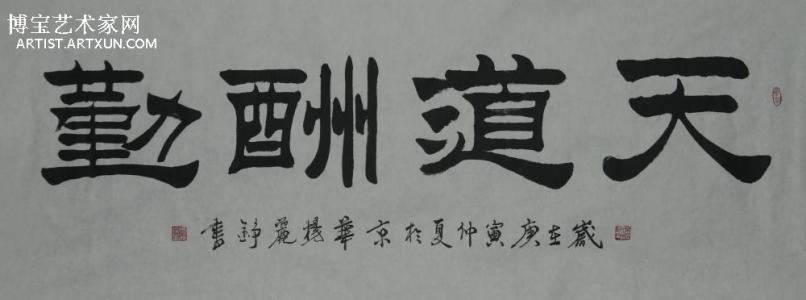 博宝艺术家网
ARTIST.ARTXUN.COM
天道酬勤
歲在庚寅仲夏於京華楊麗錚書